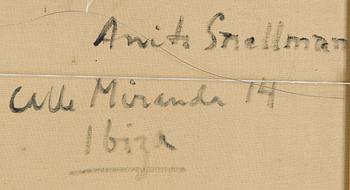 Anita Snellman
Calle Miranda 14
Ibiza